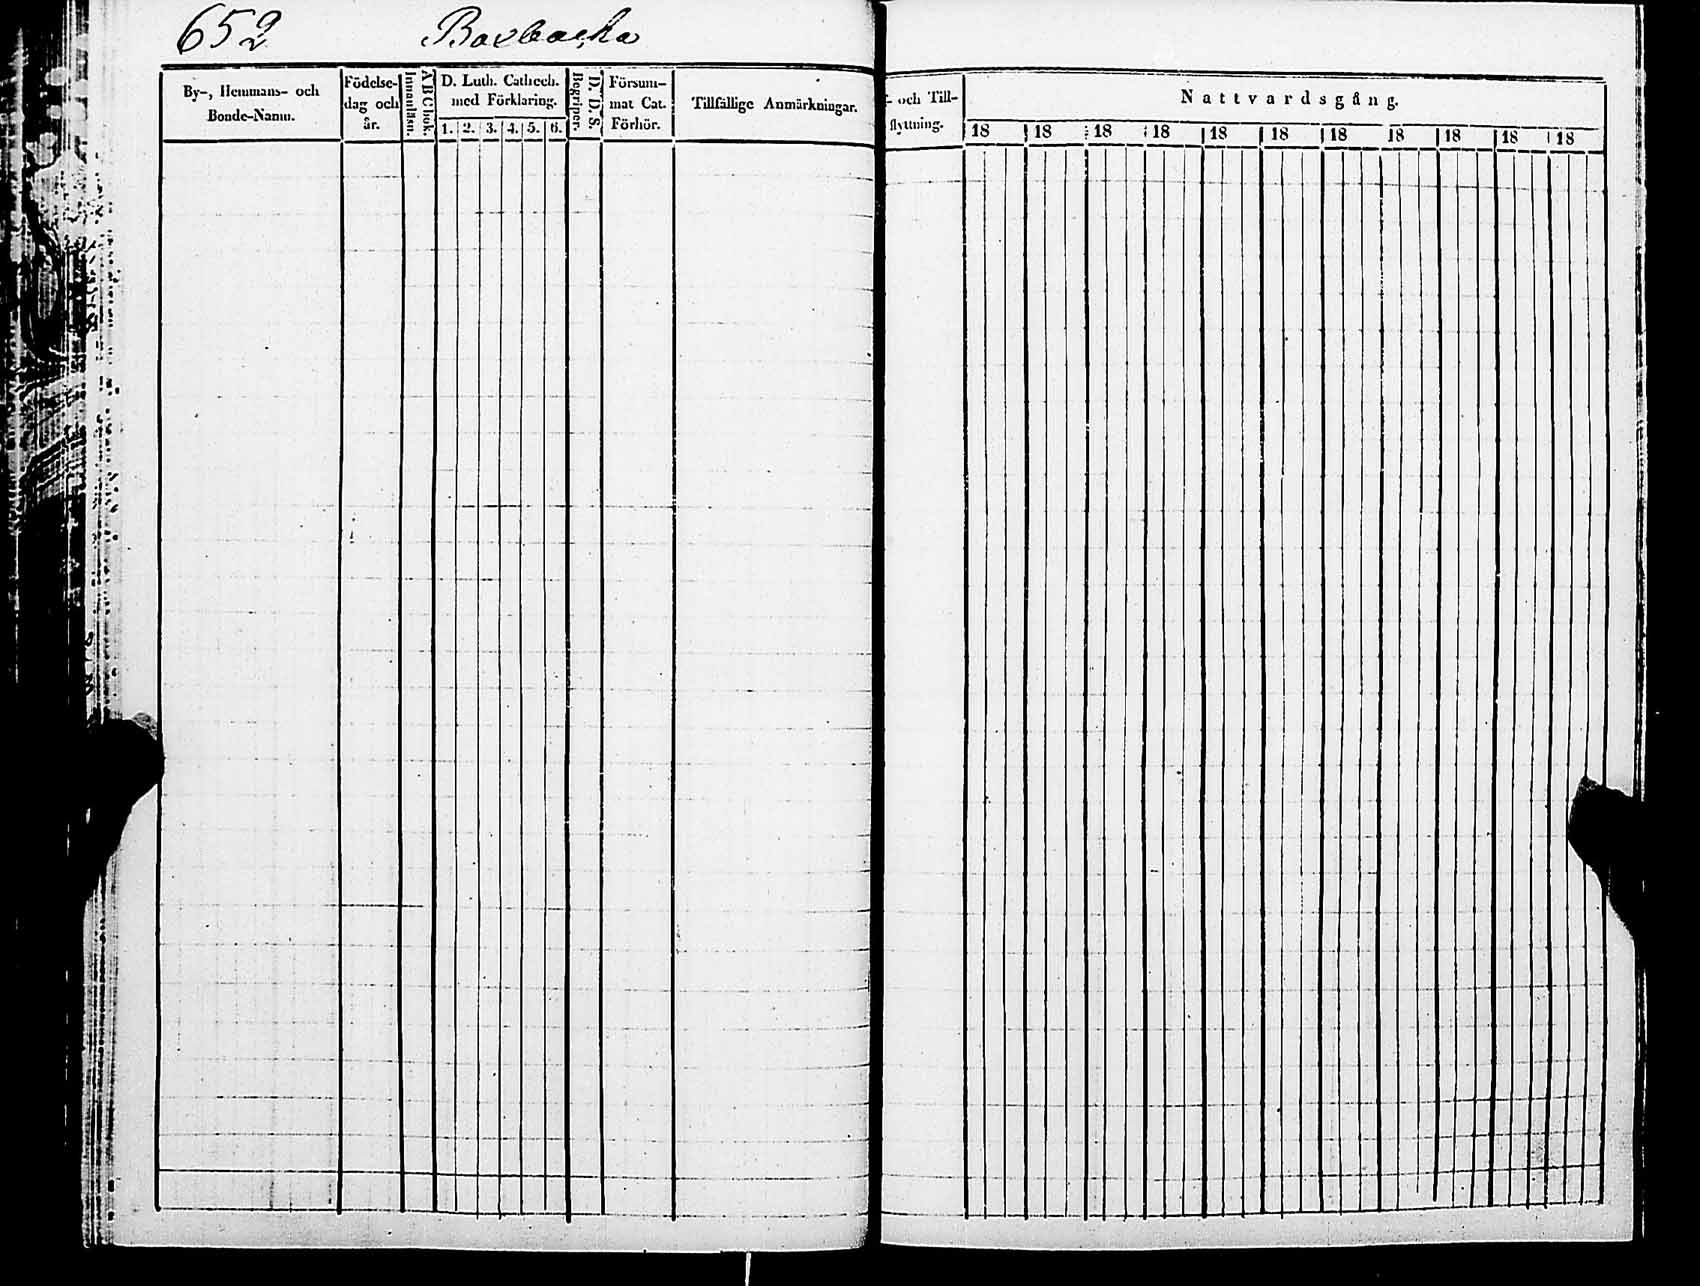 652 Boxbacka
By-, Hemmans- och
Bonde-Namn.
Födelse-
dag och
år.
Innanläsn.
A B C bok.
D. Luth. Cathech.
med Förklaring.
1. 2. 3. 4. 5. 6.
Begriper.
D. D. S.
Försum-
mat Cat.
Förhör.
Tillfällige Anmärkningar.
- och Till-
flyttning.
Nattvardsgång.
18 18 18 18 18 18 18 18 18 18 18